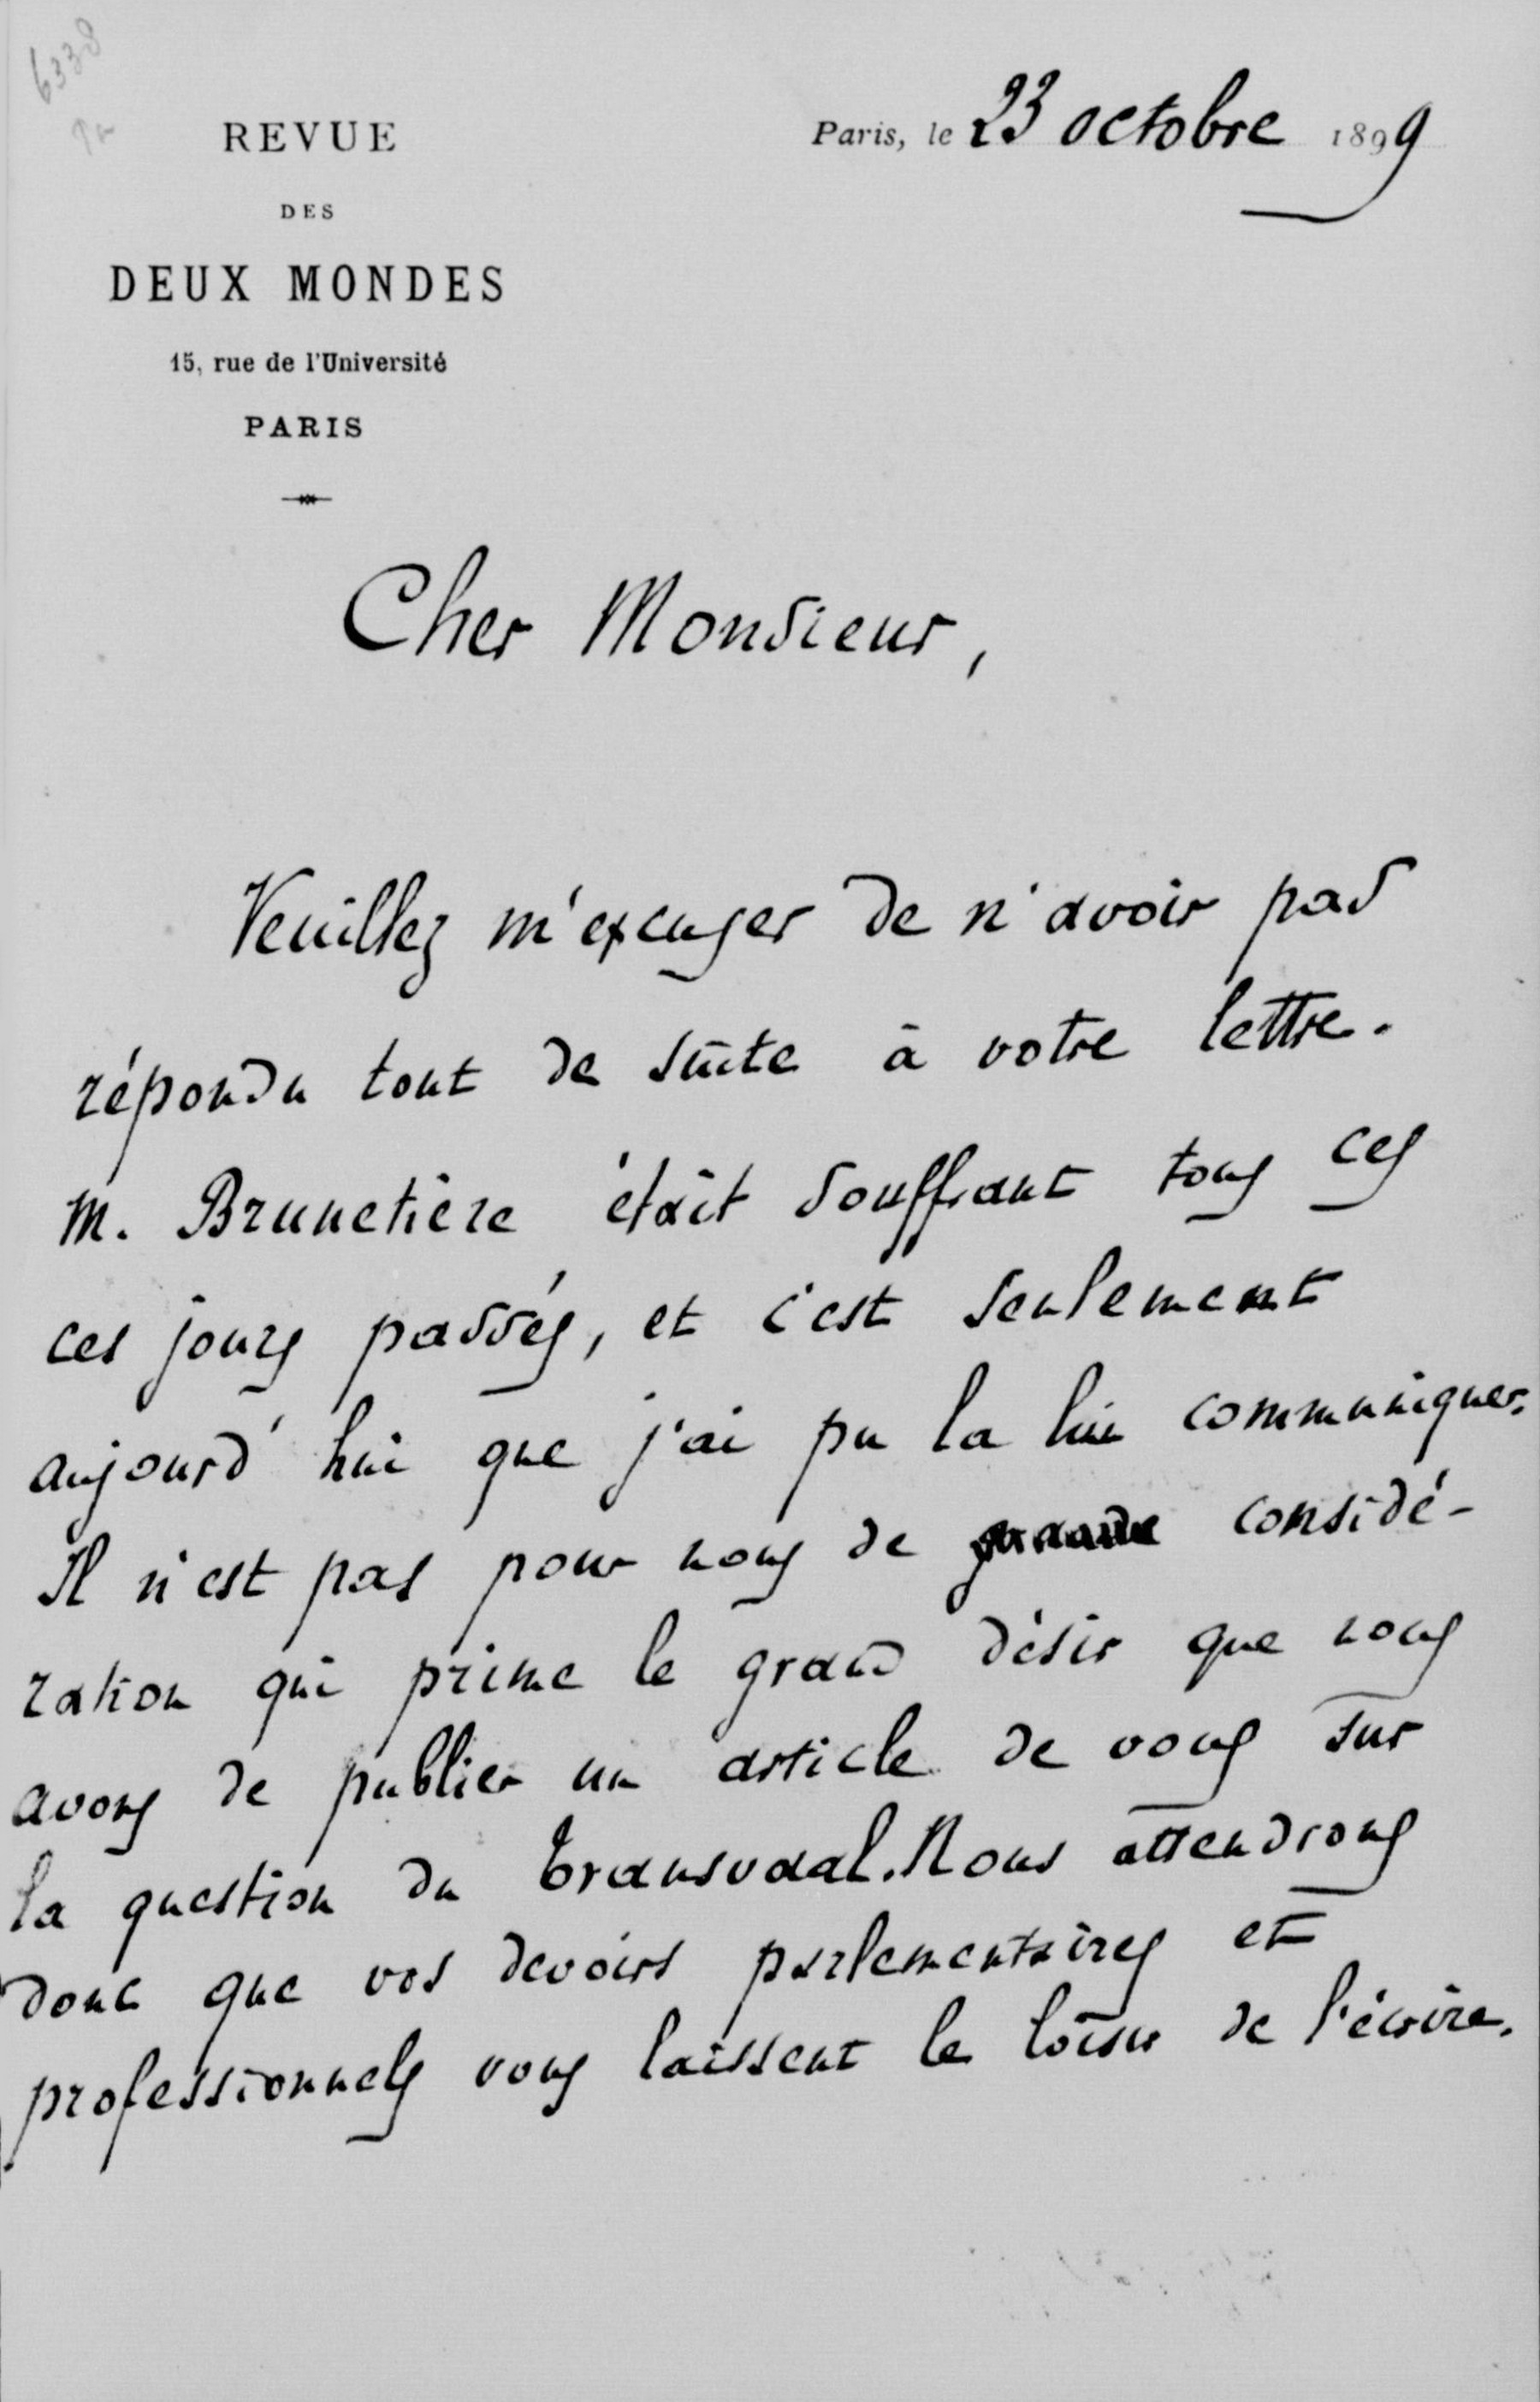 6338
REVUE
DES
DEUX MONDES
15, rue de l'Université
PARIS
Paris, le 23 octobre 1899
Cher Monsieur,
Veuillez m'excuser de n'avoir pas
répondu tout de suite à votre lettre.
M. Brunetière était souffrant tous ces
ces jours passés, et c'est seulement
aujourd'hui que j'ai pu la lui communiquer.
Il n'est pas pour nous de considé-
ration qui prime le grand désir que nous
avons de publier un article de vous sur
la question du Transvaal. Nous attendrons
donc que vos devoirs parlementaires et
professionnels vous laissent le loisir de l'écrire.